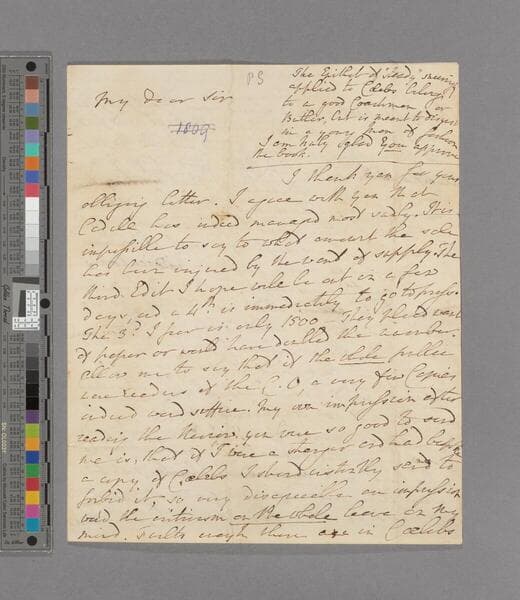 P S
The Epithet of "steady" sneeringly
applied to Cœlebs belongs
to a good Coachman or
Butler, but is meant to
in a young Man of fashion
I am truly glad you approve
the book.
My dear Sir
1809
I thank you for your
obliging letter. I agree with you that
Cadell has indeed managed most sadly. It is
impossible to say to what amount the sale
has been injured by the want of supply. The
third Edit I hope will be out in a few
days, and a 4th is immediately to go to press.
The 3d I fear is only 1500 They
of paper or would have doubled the number.
allow me to say that if the whole public
were readers of the C. O, a very few Copies
indeed would suffice. My own impression after
reading the Review you were so good to send
me is, that if I were a stranger and had
a copy of Cœlebs I should instantly send to
forbid it, so very disagreeable an impression
would the criticism on the whole leave on my
mind. Faults enough there are in Cœlebs